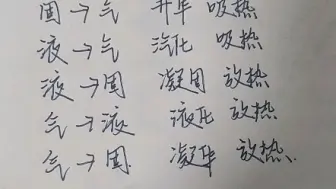 固→气 升华 吸热
液→气 汽化 吸热
液→固 凝固 放热
气→液 液化 放热
气→固 凝华 放热.